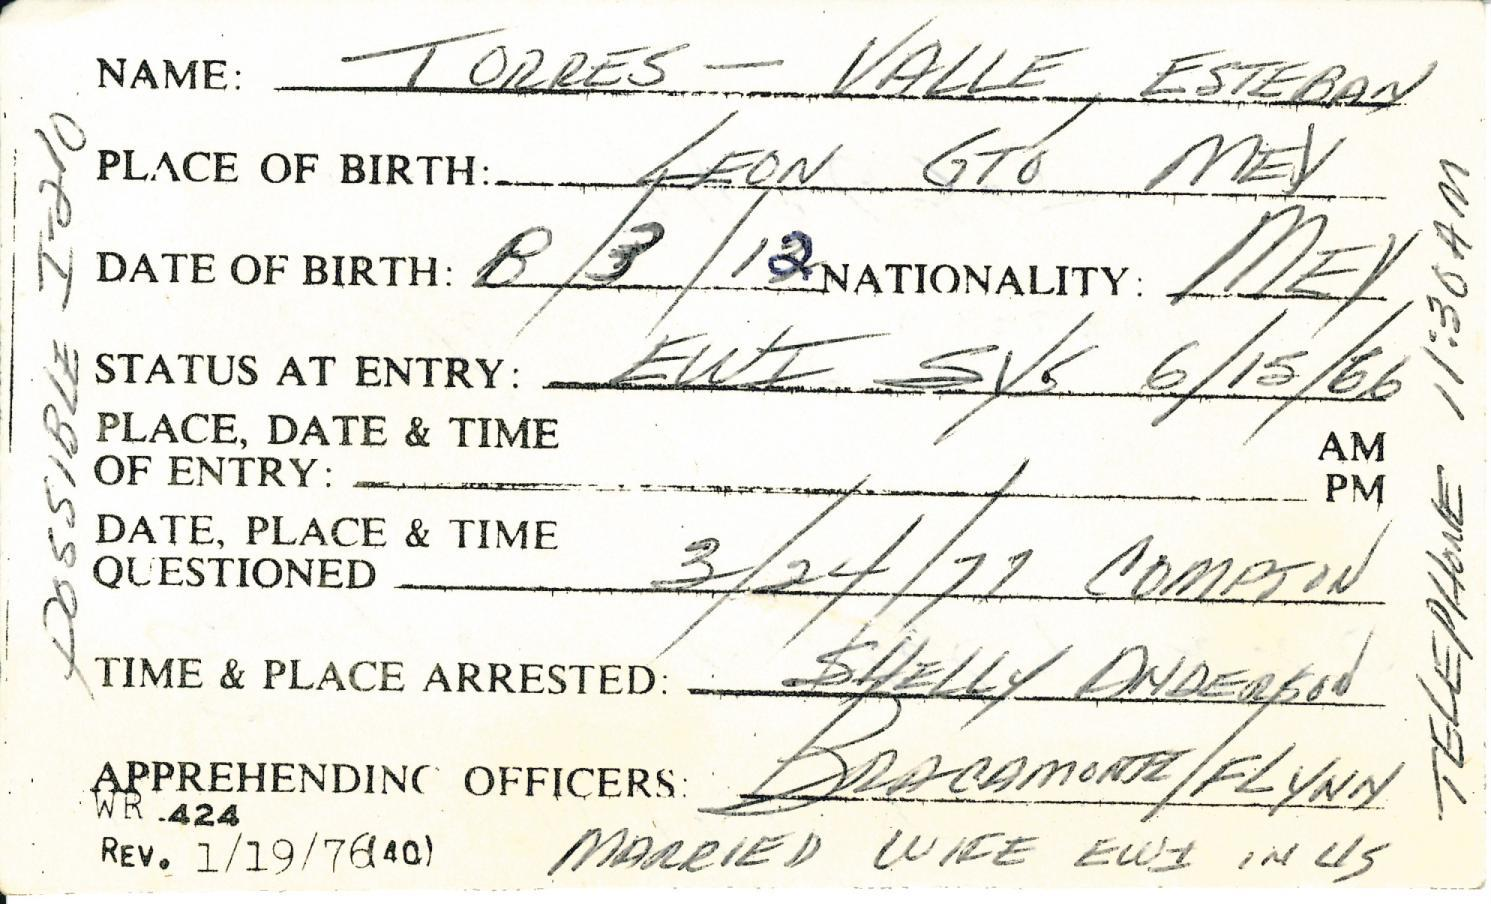 NAME: TORRES - VALLE, ESTEBAN
PLACE OF BIRTH: LEON GTO MEX
DATE OF BIRTH: 8/3/12 NATIONALITY: MEX
STATUS AT ENTRY: EWI SYS 6/15/66
PLACE, DATE & TIME
OF ENTRY: AM
PM
DATE, PLACE & TIME
QUESTIONED 3/24/77 COMPTON
TIME & PLACE ARRESTED: SHELLY ANDERSON
APPREHENDING OFFICERS: BRACAMONTE/FLYNN
WR .424
REV. 1/19/76(40) MARRIED WIFE EWI IN US
POSSIBLE I-210
TELEPHONE 11:30AM